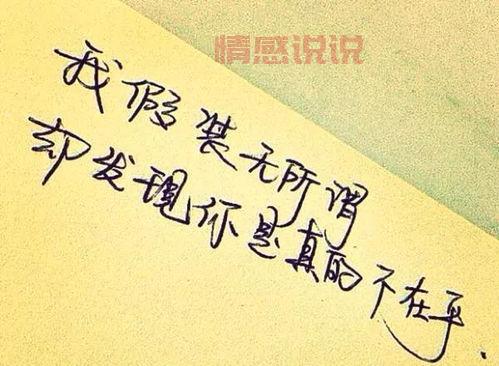 情感说说
我假装无所谓
却发现你是真的不在乎.